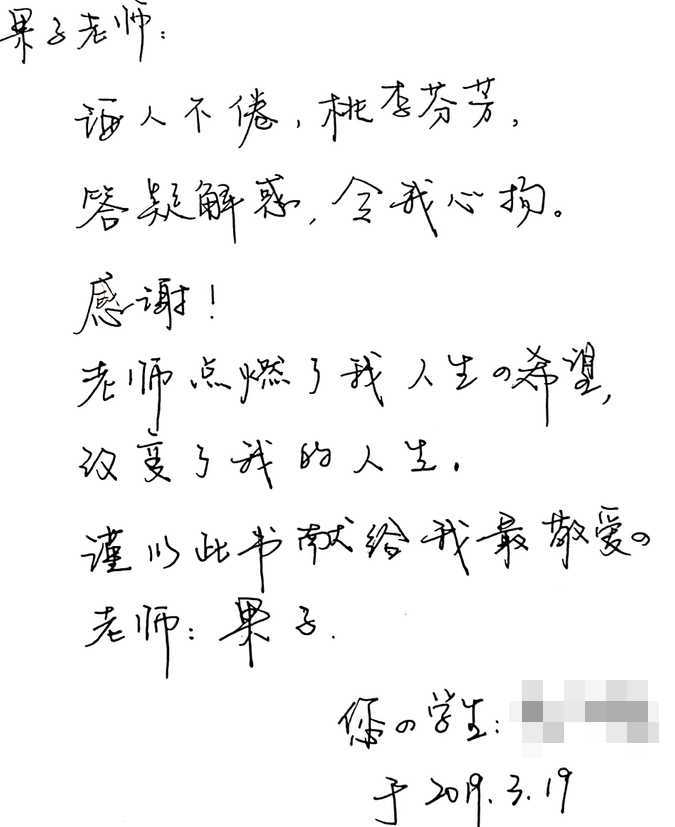 果子老师:
诲人不倦,桃李芬芳,
答疑解惑,令我心拘。
感谢!
老师点燃了我人生の希望,
改变了我的人生.
谨以此书献给我最敬爱の
老师:果子.
您の学生:
于2019.3.19